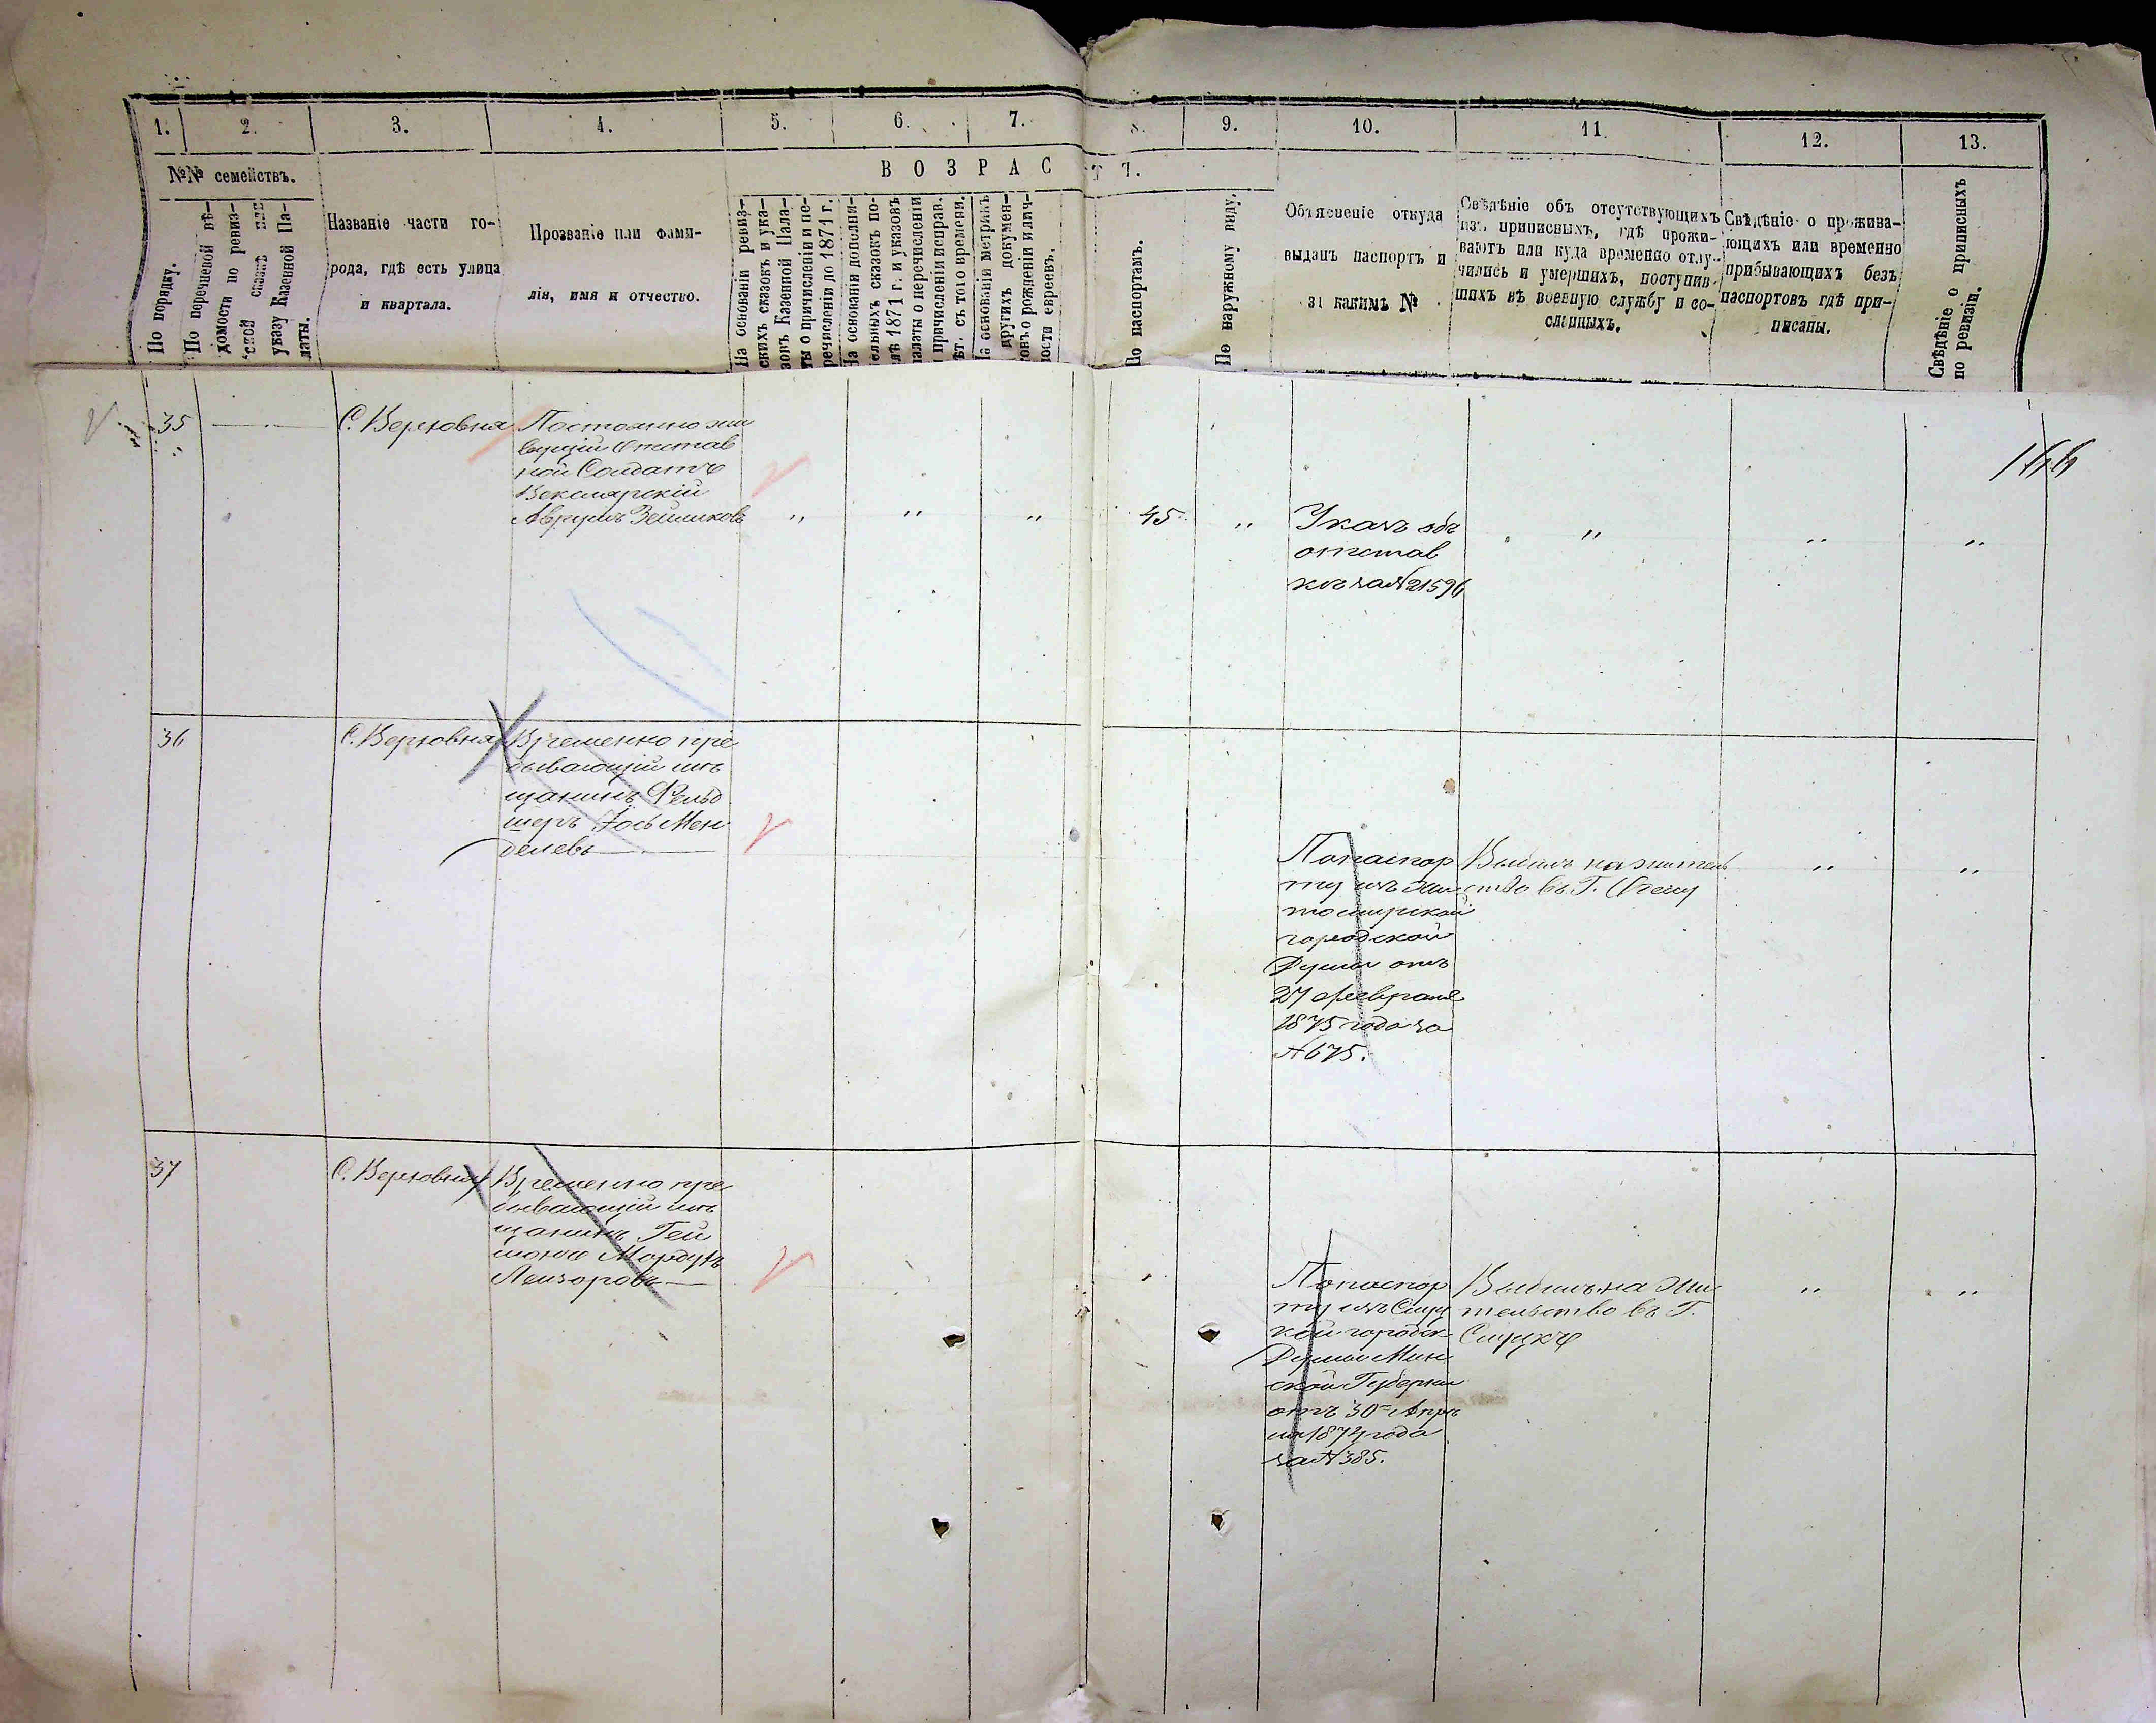 1. 2. 3. 4. 5. 6. 7. 8. 9. 10. 11. 12. 13.
№№ семействъ.
ВОЗРАСТЪ.
По порядку.
По перечневой вѣ-
домости по ревиз-
ской сказкѣ или
указу Казенной Па-
латы.
Названіе части го-
рода, гдѣ есть улица
и квартала.
Прозваніе или фами-
лія, имя и отчество.
На основаніи ревиз-
скихъ сказокъ и ука-
зовъ Казенной Пала-
ты о причисленіи и пе-
речисленіи до 1871 г.
На основаніи дополни-
тельныхъ сказокъ по-
слѣ 1871 г. и указовъ
палаты о перечисленіи
и причисленіи исправ.
лѣт. съ того времени.
На основаніи метрикъ
другихъ докумен-
товъ о рожденіи и лич-
ности евреевъ.
По паспортамъ.
По наружному виду.
Объясненіе откуда
выданъ паспортъ и
за какимъ №
Свѣдѣніе объ отсутствующихъ
изъ приписныхъ, гдѣ прожи-
ваютъ или куда временно отлу-
чились и умершихъ, поступив-
шихъ въ военную службу и со-
сланныхъ.
Свѣдѣніе о прожива-
ющихъ или временно
прибывающихъ безъ
паспортовъ гдѣ при-
писаны.
Свѣдѣніе о приписныхъ
по ревизіи.
35
С. Верховня
Постоянно жи
вущій Отстав
ной Солдатъ
Векслярскій
Аврумъ Зейликовъ
" " "
45 "
Указъ объ
отстав
къ за №21596
" " "
166
36
С. Верховня
Временно пре
бывающій мѣ
щанинъ Фельд
шеръ Іось Мен
делевъ
По паспор
ту изъ Жи
томирской
городской
Думы отъ
27 февраля
1875 года за
№675.
Выбылъ на житель
ство въ Г.
" "
37
С. Верховня
Временно пре
бывающій мѣ
щанинъ Гей
Мордухъ
Лейзоровъ
По паспор
ту изъ Слуц
кой городск
Думы Мин
ской Губерніи
отъ 30 Апрѣ
ля 1874 года
за №385.
Выбылъ на жи
тельство въ Г.
Слуцкъ
" "